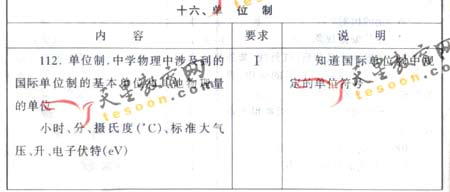 十六、单 位 制
内 容 要求 说 明
112. 单位制.中学物理中涉及到的 Ⅰ 知道国际单位制中规
国际单位制的基本单位和其他物理量 定的单位符号
的单位
小时、分、摄氏度(℃)、标准大气
压、升、电子伏特(eV)
天星教育网
tesoon.com
天星教育网
tesoon.com